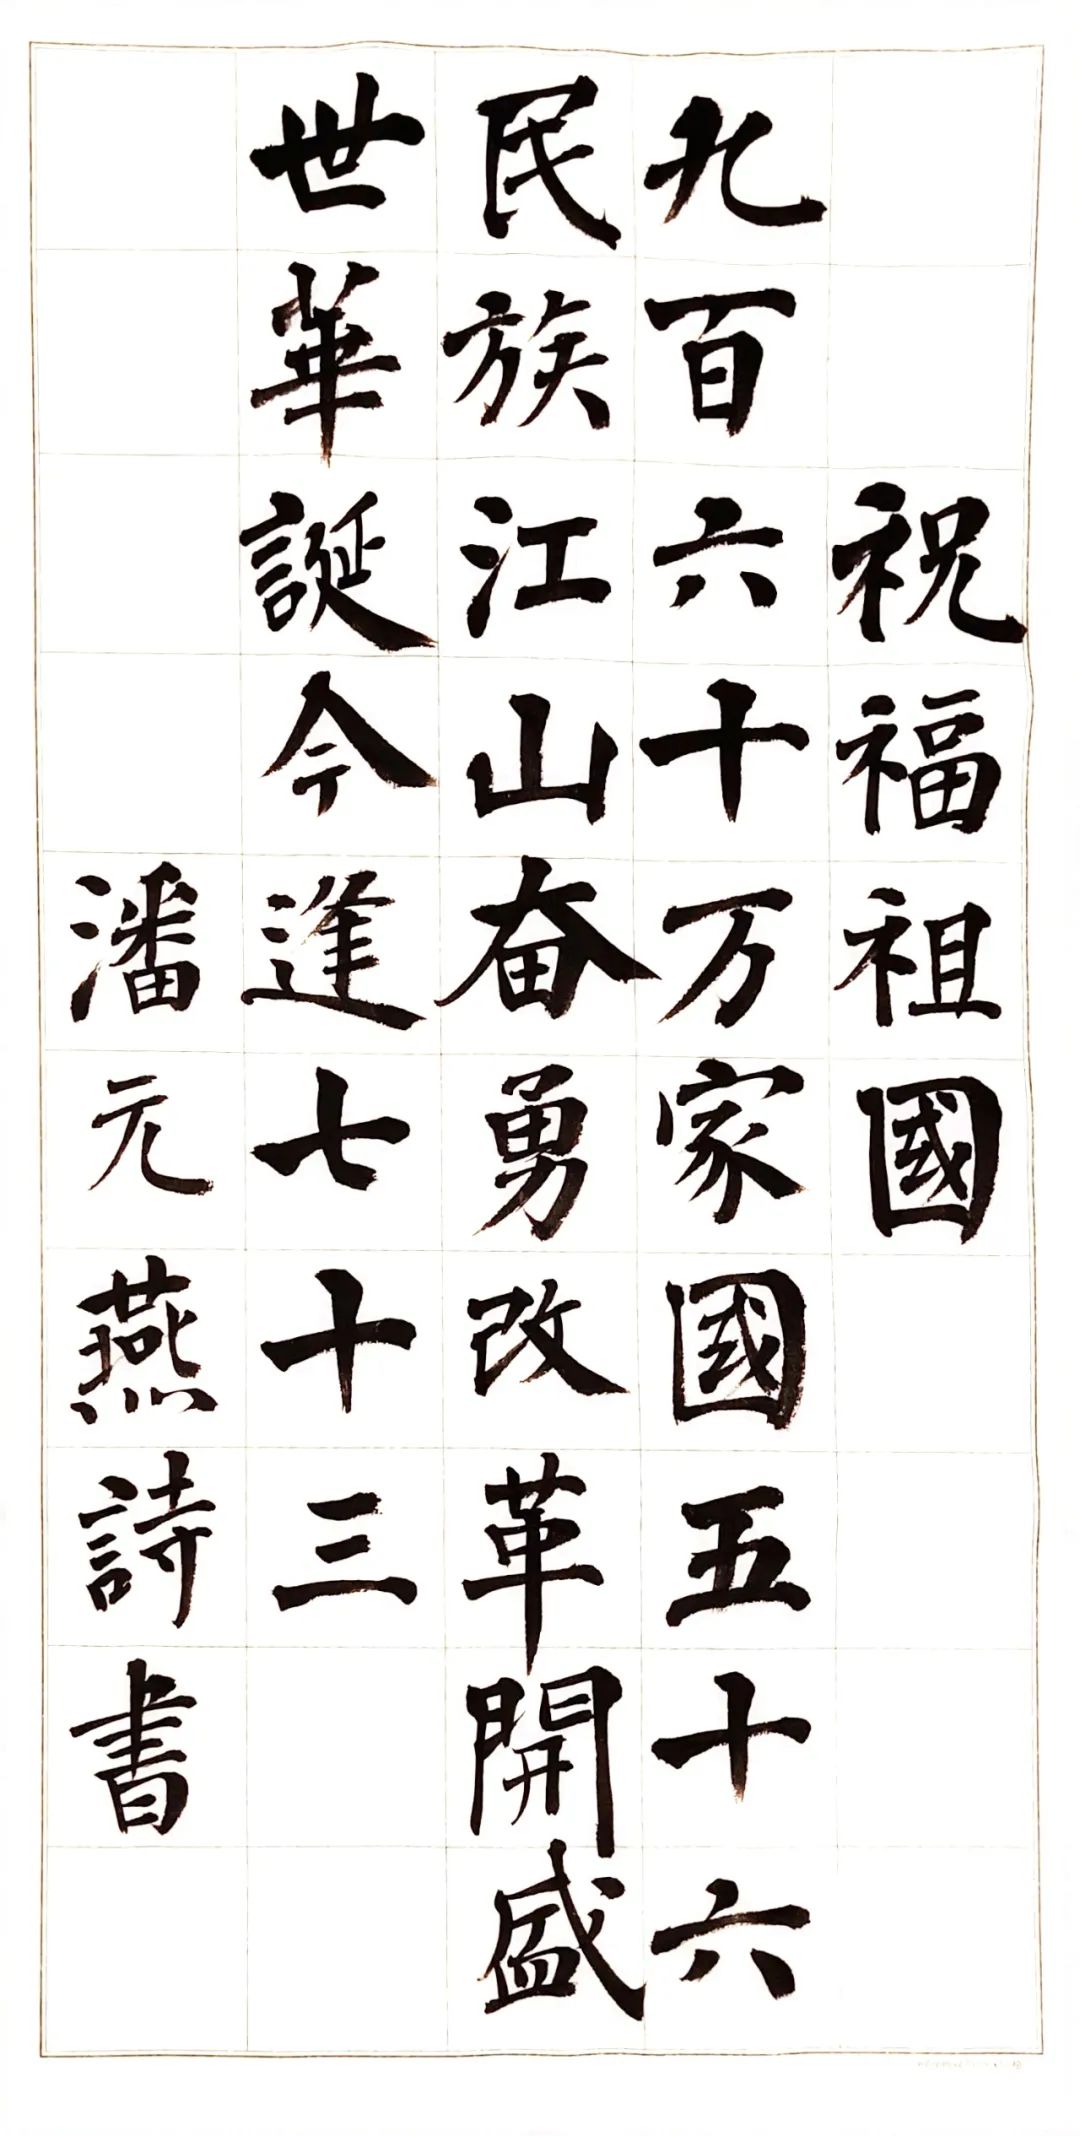 祝福祖國
九百六十万家國五十六
民族江山奋勇改革開盛
世華誕今逢七十三
潘元燕詩書